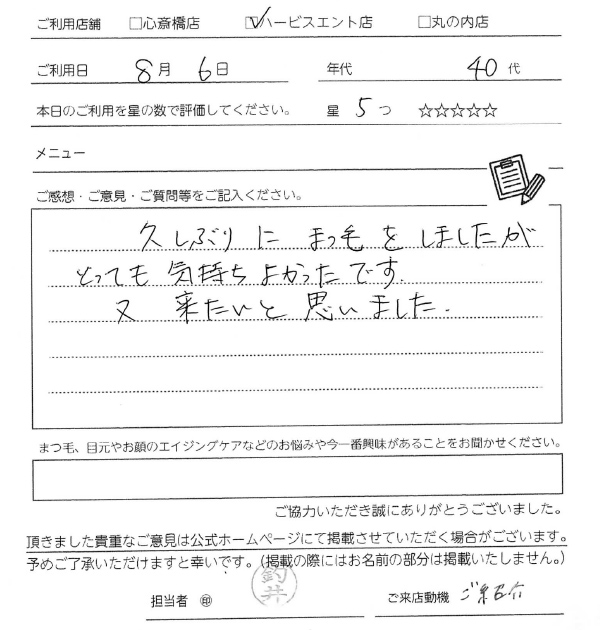 ご利用店舗 □心斎橋店 ☑ハービスエント店 □丸の内店
ご利用日 8月 6日 年代 40代
本日のご利用を星の数で評価してください。 星 5つ ☆☆☆☆☆
メニュー
ご感想・ご意見・ご質問等をご記入ください。
久しぶりに まつ毛をしましたが
とっても気持ちよかったです.
又 来たいと思いました.
まつ毛、目元やお顔のエイジングケアなどのお悩みや今一番興味があることをお聞かせください。
ご協力いただき誠にありがとうございました。
頂きました貴重なご意見は公式ホームページにて掲載させていただく場合がございます。
予めご了承いただけますと幸いです。(掲載の際にはお名前の部分は掲載いたしません。)
担当者 ㊞ 釣井 ご来店動機 ご紹介